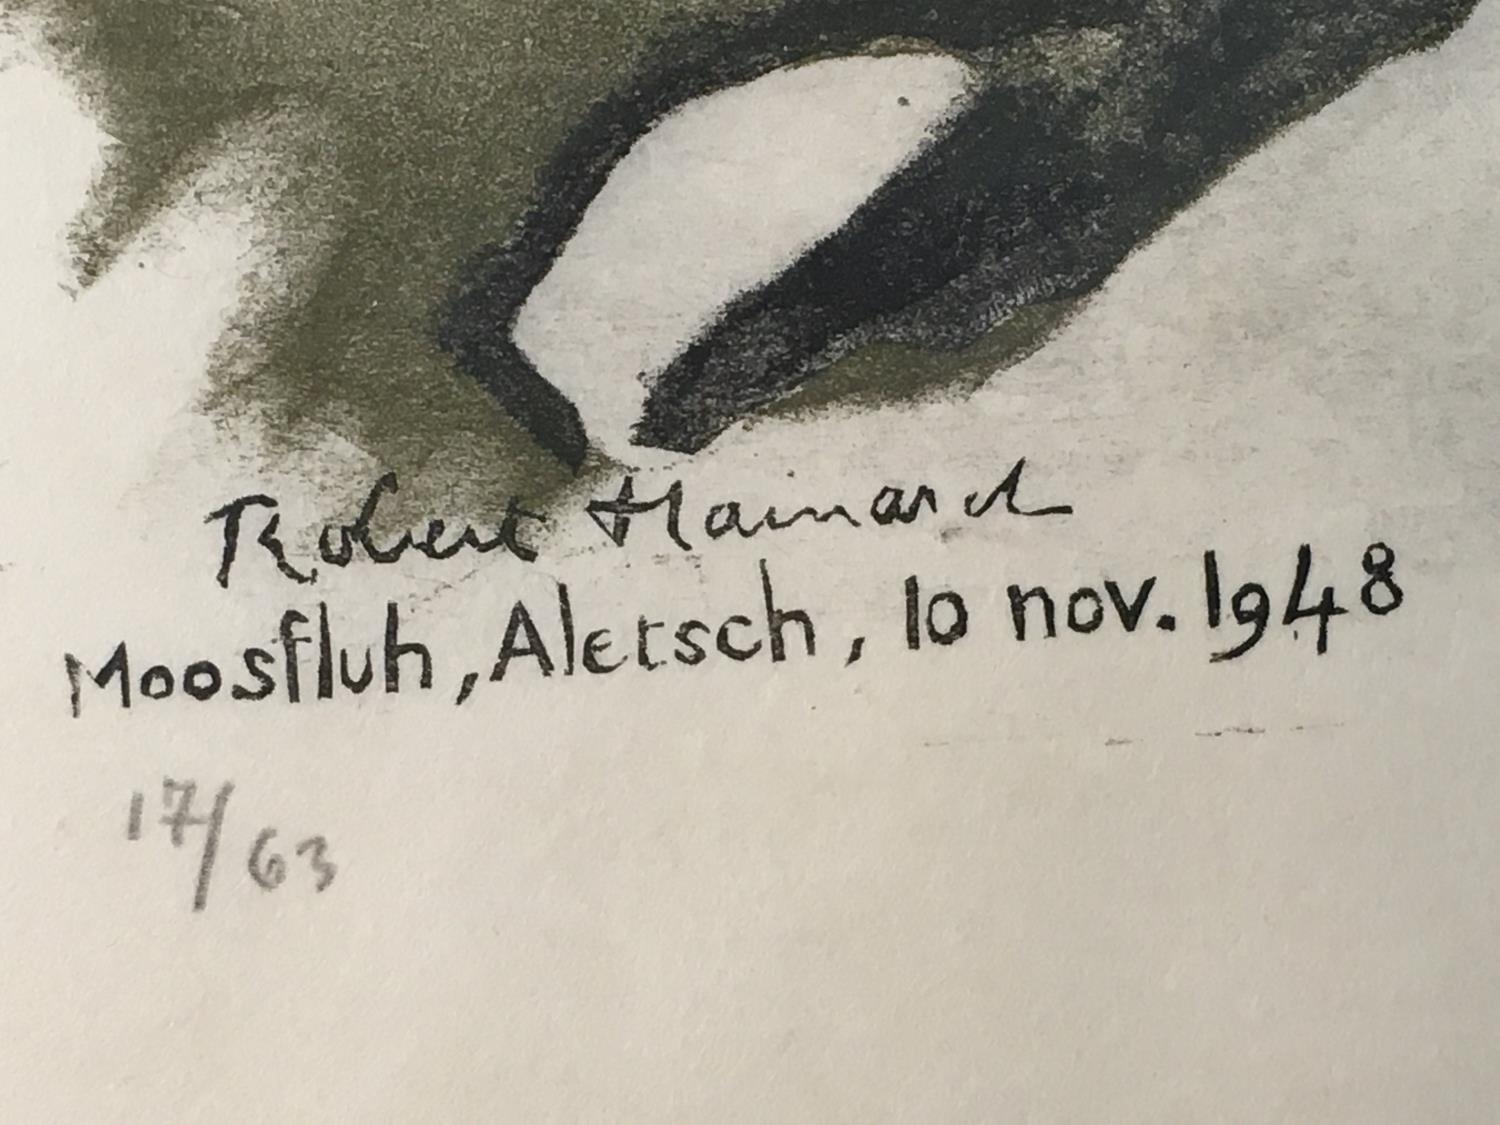 Robert Hainard
Moosfluh, Aletsch, 10 nov. 1948
17/63